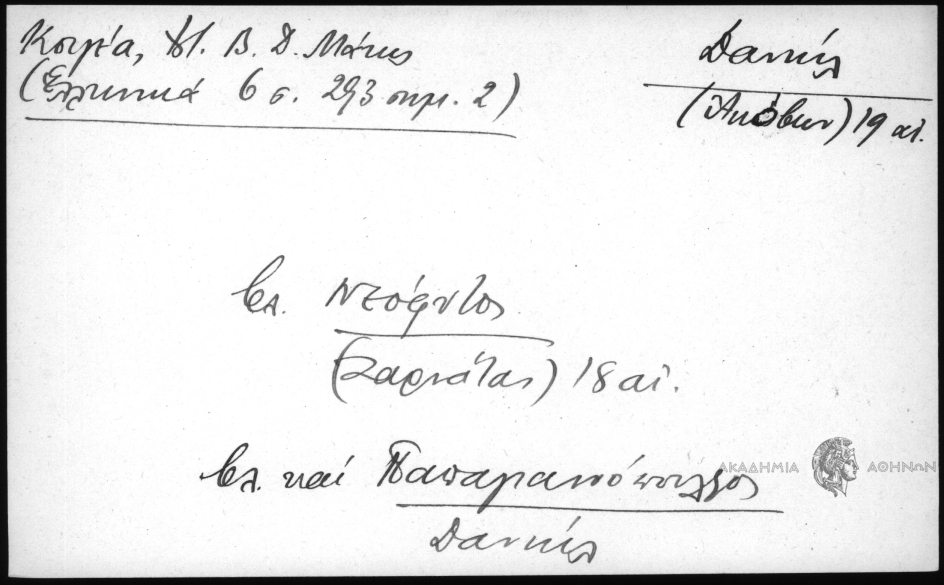 Κουγέα, Σ. Β. Δ. Μάνης
(Ἑλληνικά 6 σ. 293 σημ. 2)
Δανιήλ
(Ἀκόβων) 19 αἰ.
βλ. Νεόφυτος
(Ζαρνάτας) 18 αἰ.
βλ. καί Παπαμανόπουλος
Δανιήλ
ΑΚΑΔΗΜΙΑ ΑΘΗΝΩΝ